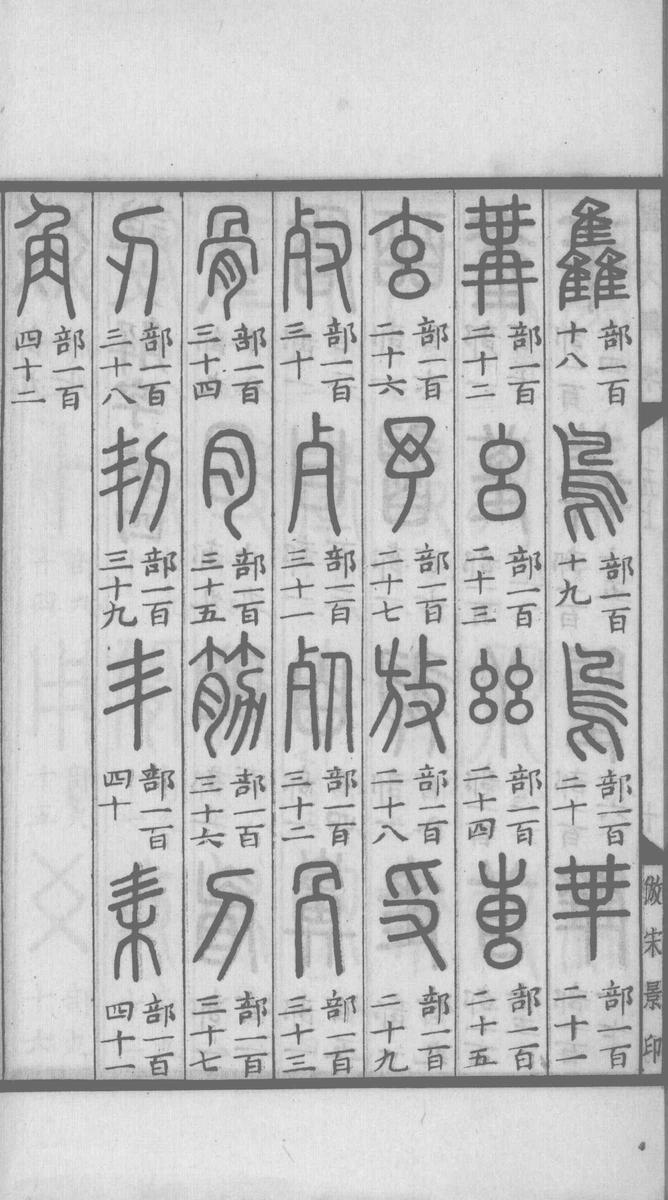 雥部一百十八 鳥部一百十九 烏部一百二十 𠦒部一百二十一
冓部一百二十二 幺部一百二十三 𢆶部一百二十四 叀部一百二十五
玄部一百二十六 予部一百二十七 放部一百二十八 𠬪部一百二十九
𣦼部一百三十 歺部一百三十一 死部一百三十二 冎部一百三十三
骨部一百三十四 肉部一百三十五 筋部一百三十六 刀部一百三十七
刃部一百三十八 㓞部一百三十九 丯部一百四十 耒部一百四十一
角部一百四十二
倣宋景印